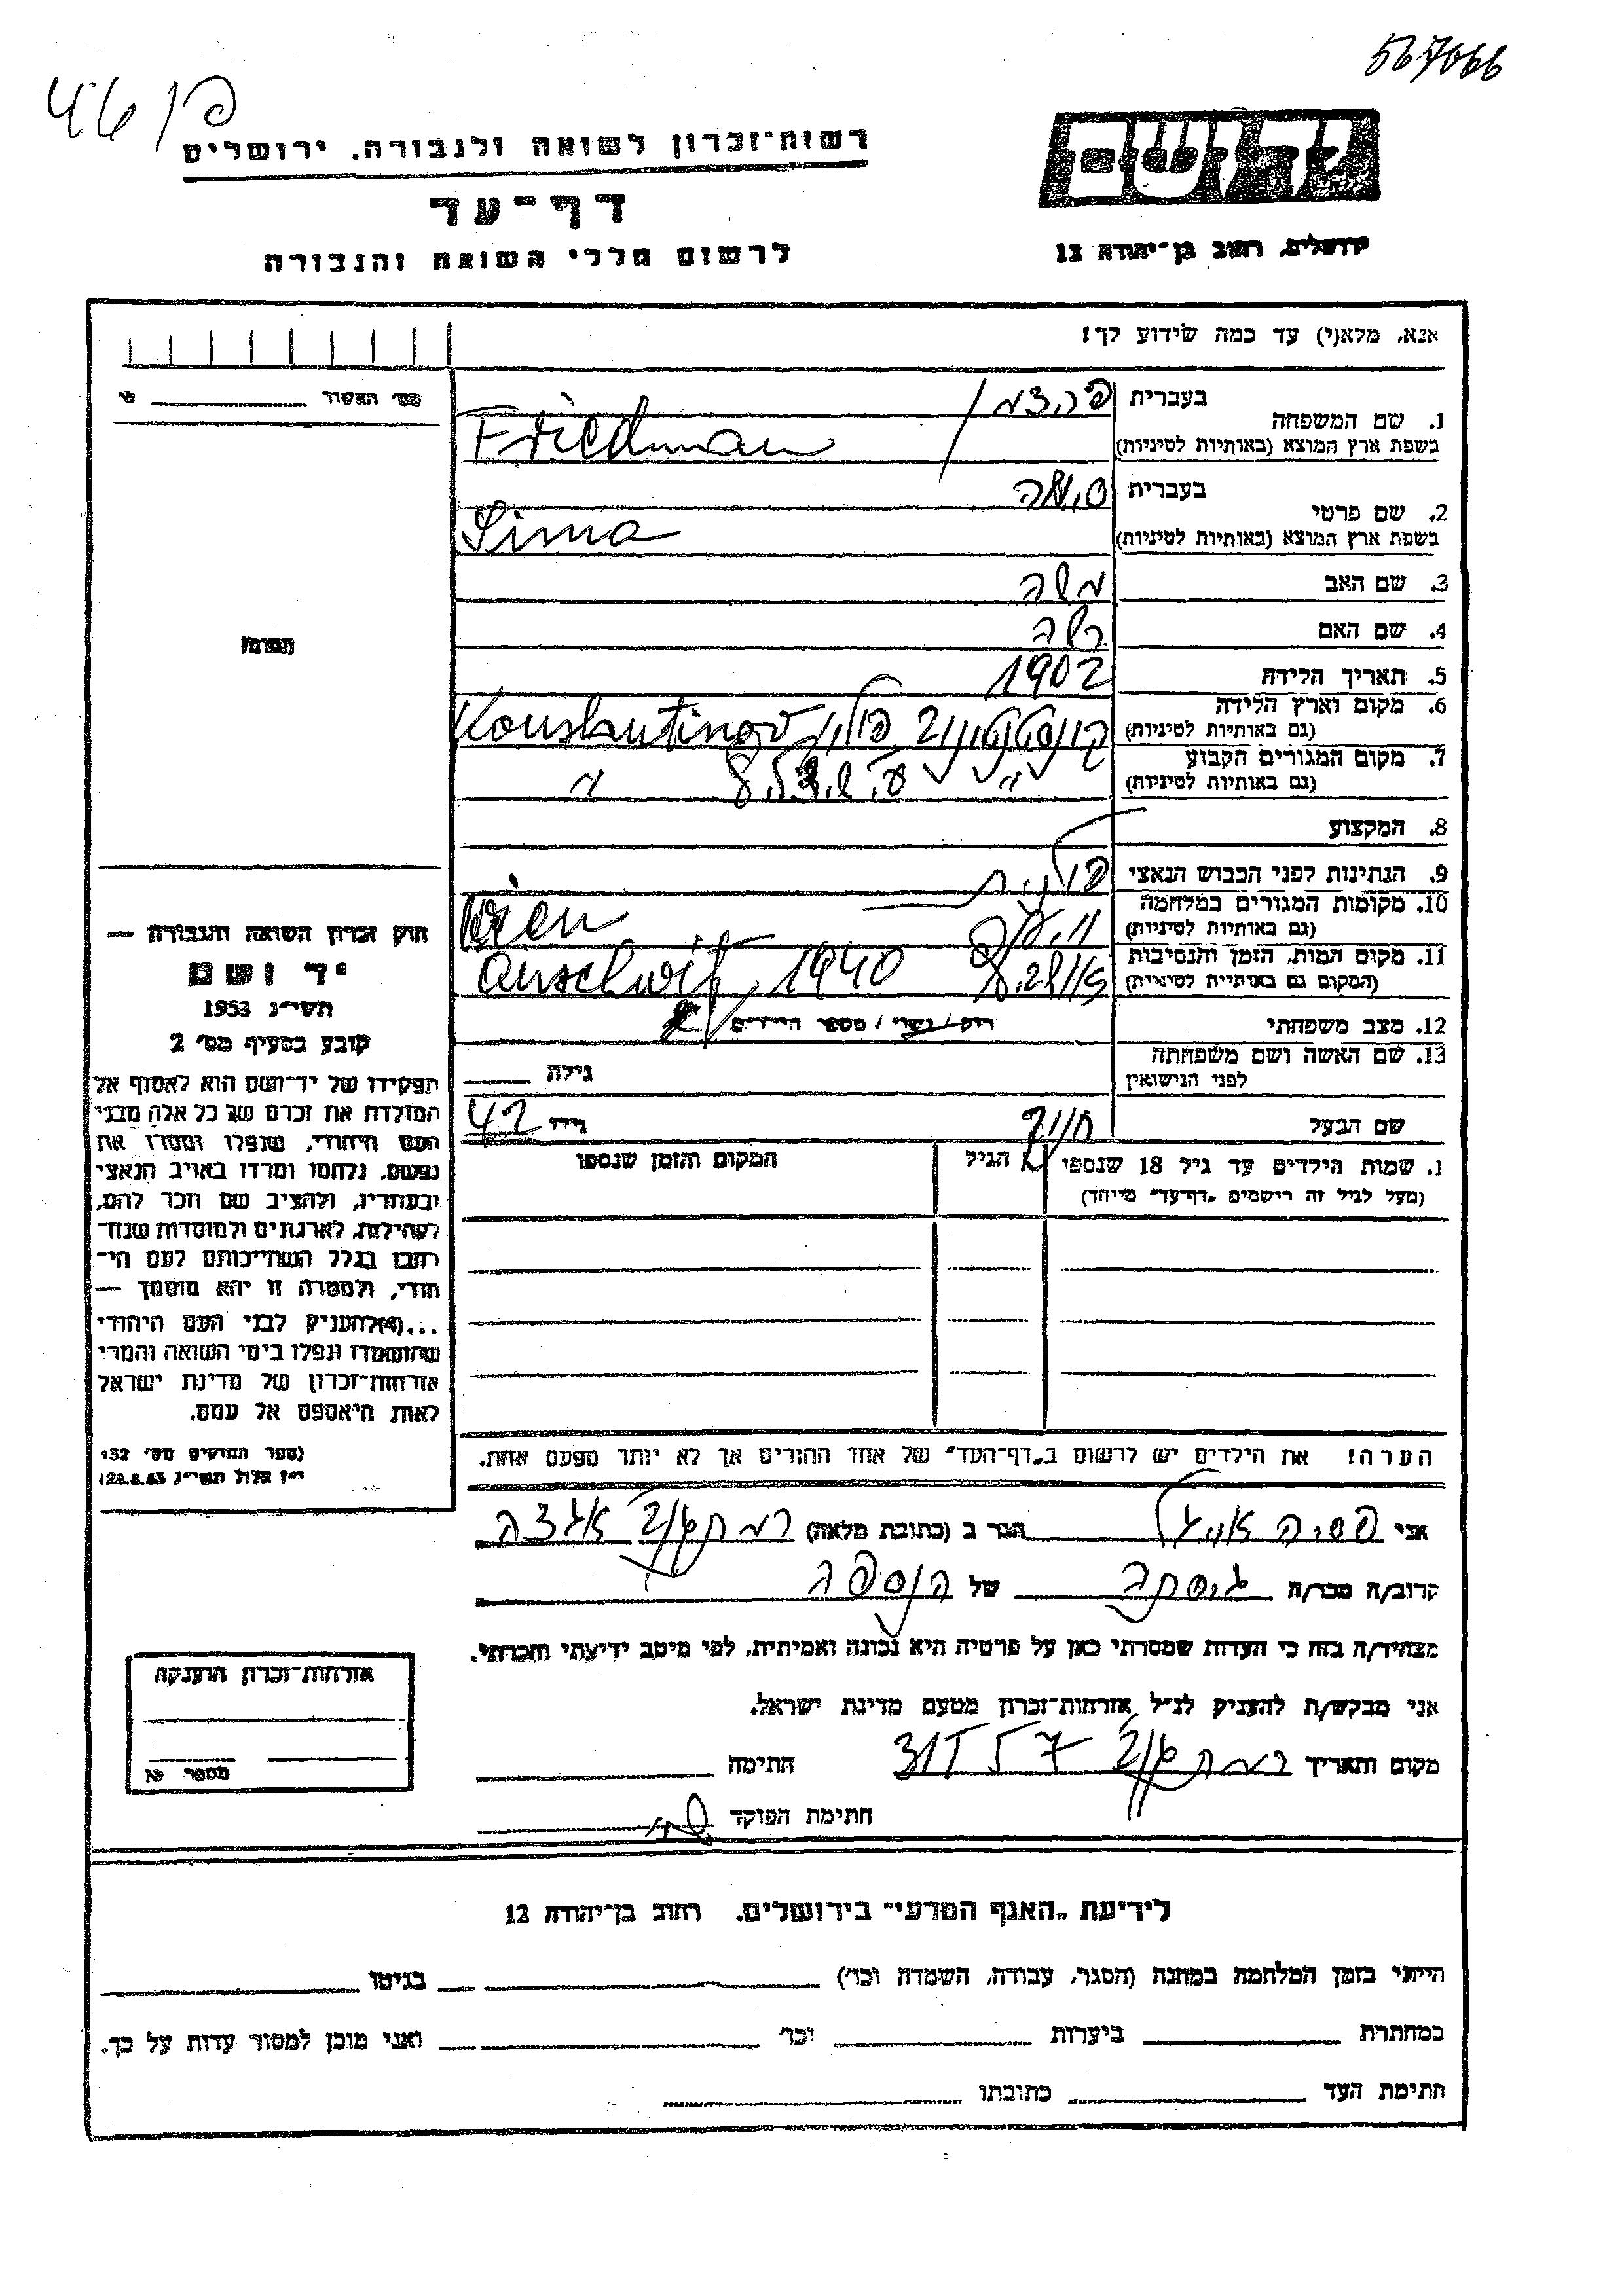 567066
46/פ
רשות-זכרון לשואה ולגבורה, ירושלים
יד ושם
דף-עד
לרשום חללי השואה והגבורה
ירושלים, רחוב בן-יהודה 12
אנא, מלא(י) עד כמה שידוע לך!
מס' האשור
1. שם המשפחה בעברית
בשפת ארץ המוצא (באותיות לטיניות) Friedman
2. שם פרטי בעברית סימה
בשפת ארץ המוצא (באותיות לטיניות) Sima
3. שם האב משה
4. שם האם
5. תאריך הלידה 1902
6. מקום וארץ הלידה קונסטנטינוב פולין Konstantinov
(גם באותיות לטיניות)
7. מקום המגורים הקבוע
(גם באותיות לטיניות)
8. המקצוע
9. הנתינות לפני הכבוש הנאצי פולנית
10. מקומות המגורים במלחמה Wien
(גם באותיות לטיניות)
11. מקום המות, הזמן והנסיבות 1940
(המקום גם באותיות לטיניות)
12. מצב משפחתי רוק/נשוי/מספר הילדים
13. שם האשה ושם משפחתה גילה
לפני הנישואין
שם הבעל גילו 42
התמונה
חוק זכרון השואה והגבורה —
יד ושם
תשי"ג 1953
קובע בסעיף מס' 2
תפקידו של יד-ושם הוא לאסוף אל
המולדת את זכרם של כל אלה מבני
העם היהודי, שנפלו ומסרו את
נפשם, נלחמו ומרדו באויב הנאצי
ובעוזריו, ולהציב שם וזכר להם,
לקהילות, לארגונים ולמוסדות שנח-
רבו בגלל השתייכותם לעם הי-
הודי, ולמטרה זו יהא מוסמך —
...(4) להעניק לבני העם היהודי
שהושמדו ונפלו בימי השואה והמרי
אזרחות-זכרון של מדינת ישראל
לאות היאספם אל עמם.
(ספר החוקים מס' 132
י"ז אלול תשי"ג 28.8.53)
1. שמות הילדים עד גיל 18 שנספו הגיל המקום והזמן שנספו
(מעל לגיל זה רושמים "דף-עד" מיוחד)
הערה! את הילדים יש לרשום ב"דף-העד" של אחד ההורים אך לא יותר מפעם אחת.
אני הגר ב (כתובת מלאה)
קרוב/ה מכר/ה גיסתה של הנספה
מצהיר/ה בזה כי העדות שמסרתי כאן על פרטיה היא נכונה ואמיתית, לפי מיטב ידיעתי והכרתי.
אני מבקש/ת להעניק לנ"ל אזרחות-זכרון מטעם מדינת ישראל.
מקום ותאריך 31 V 57 חתימה
חתימת הפוקד
אזרחות-זכרון הוענקה
מספר
לידיעת "האגף המדעי" בירושלים, רחוב בן-יהודה 12
הייתי בזמן המלחמה במחנה (הסגר, עבודה, השמדה וכו') בגיטו
במחתרת ביערות וכו' ואני מוכן למסור עדות על כך.
חתימת העד כתובתו